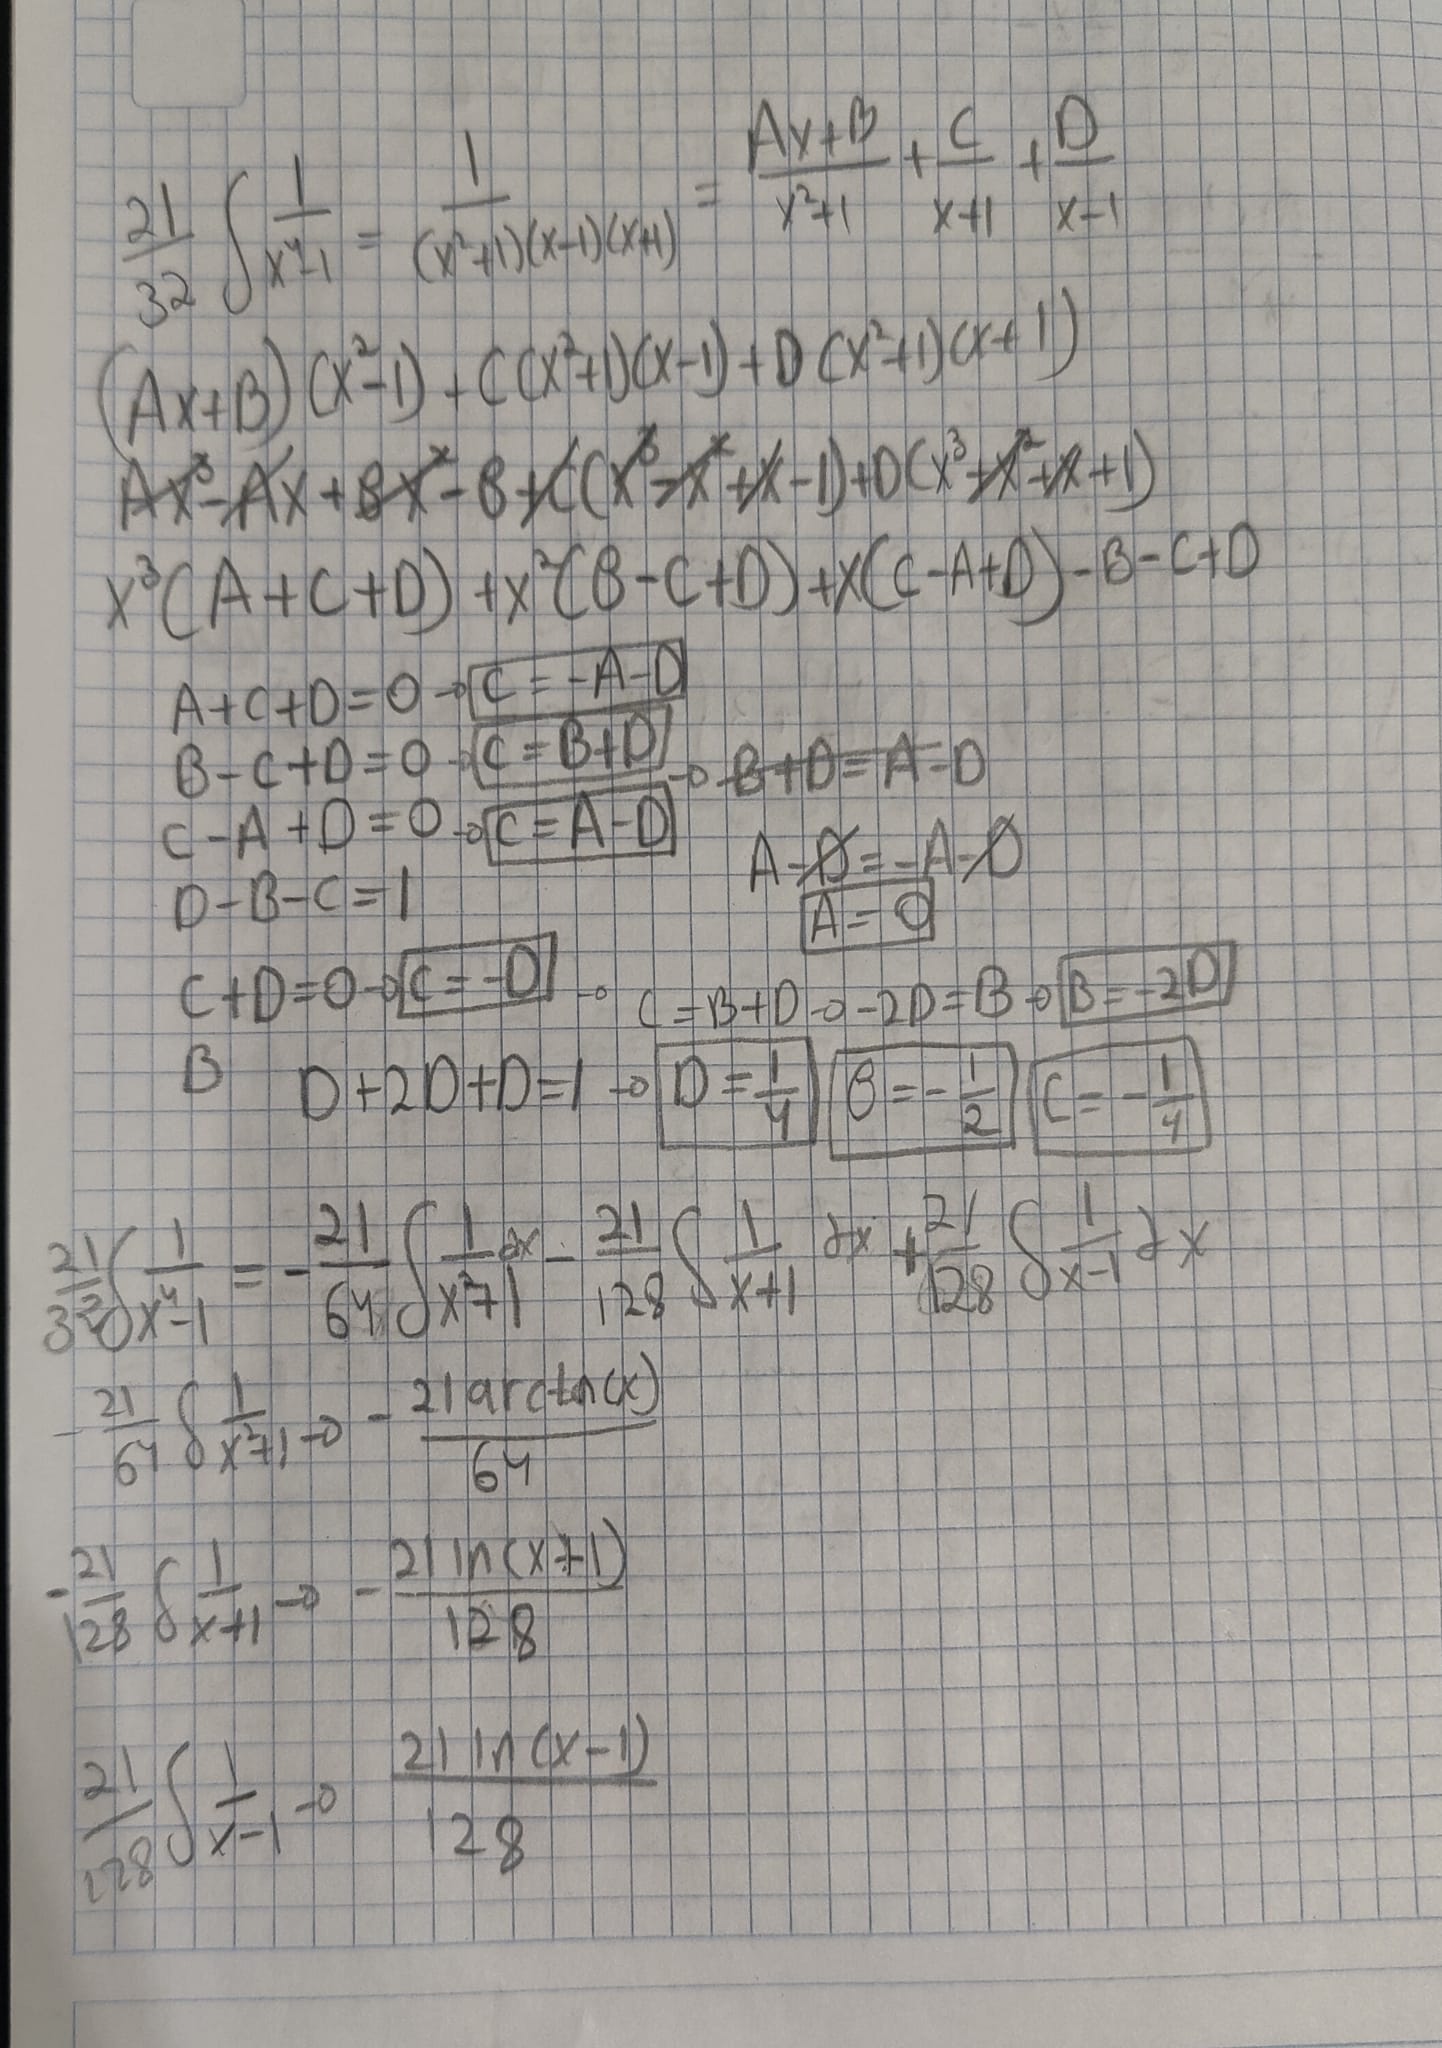 21/32 ∫ 1/(x⁴-1) = 1/((x²+1)(x-1)(x+1)) = (Ax+B)/(x²+1) + C/(x+1) + D/(x-1)
(Ax+B)(x²-1)+C(x²+1)(x-1)+D(x²+1)(x+1)
Ax³-Ax+Bx²-B+C(x³-x²+x-1)+D(x³+x²+x+1)
x³(A+C+D)+x²(B-C+D)+x(C-A+D)-B-C+D
A+C+D=0→C=-A-D
B-C+D=0→C=B+D → B+D=A-D
C-A+D=0→C=A-D
A-D=-A-D
D-B-C=1
A=0
C+D=0→C=-D → C=B+D→-2D=B→B=-2D
B D+2D+D=1→D=1/4 B=-1/2 C=-1/4
21/32 ∫ 1/(x⁴-1) = -21/64 ∫ 1/(x²+1) dx - 21/128 ∫ 1/(x+1) dx + 21/128 ∫ 1/(x-1) dx
-21/64 ∫ 1/(x²+1) → - 21arctn(x)/64
-21/128 ∫ 1/(x+1) → - 21 ln(x+1)/128
21/128 ∫ 1/(x-1) → 21 ln(x-1)/128